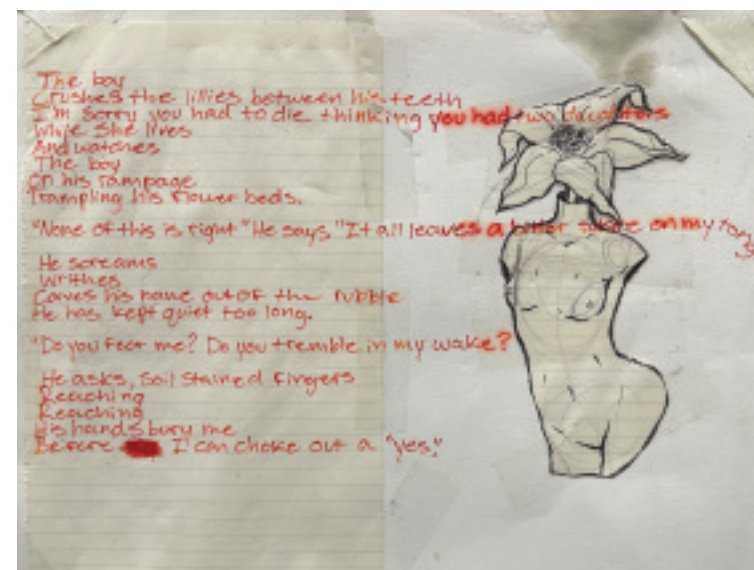 The boy
Crushes the lillies between his teeth
I'm sorry you had to die thinking you had two daughters
While she lives
And watches
The boy
On his rampage
Trampling his flower beds.
"None of this is right" He says "It all leaves a bitter taste on my tong
He screams
Writhes
Carves his name out of the rubble
He has kept quiet too long.
"Do you fear me? Do you tremble in my wake?
He asks, soil stained fingers
Reaching
Reaching
His hands bury me
Before I can choke out a "yes."